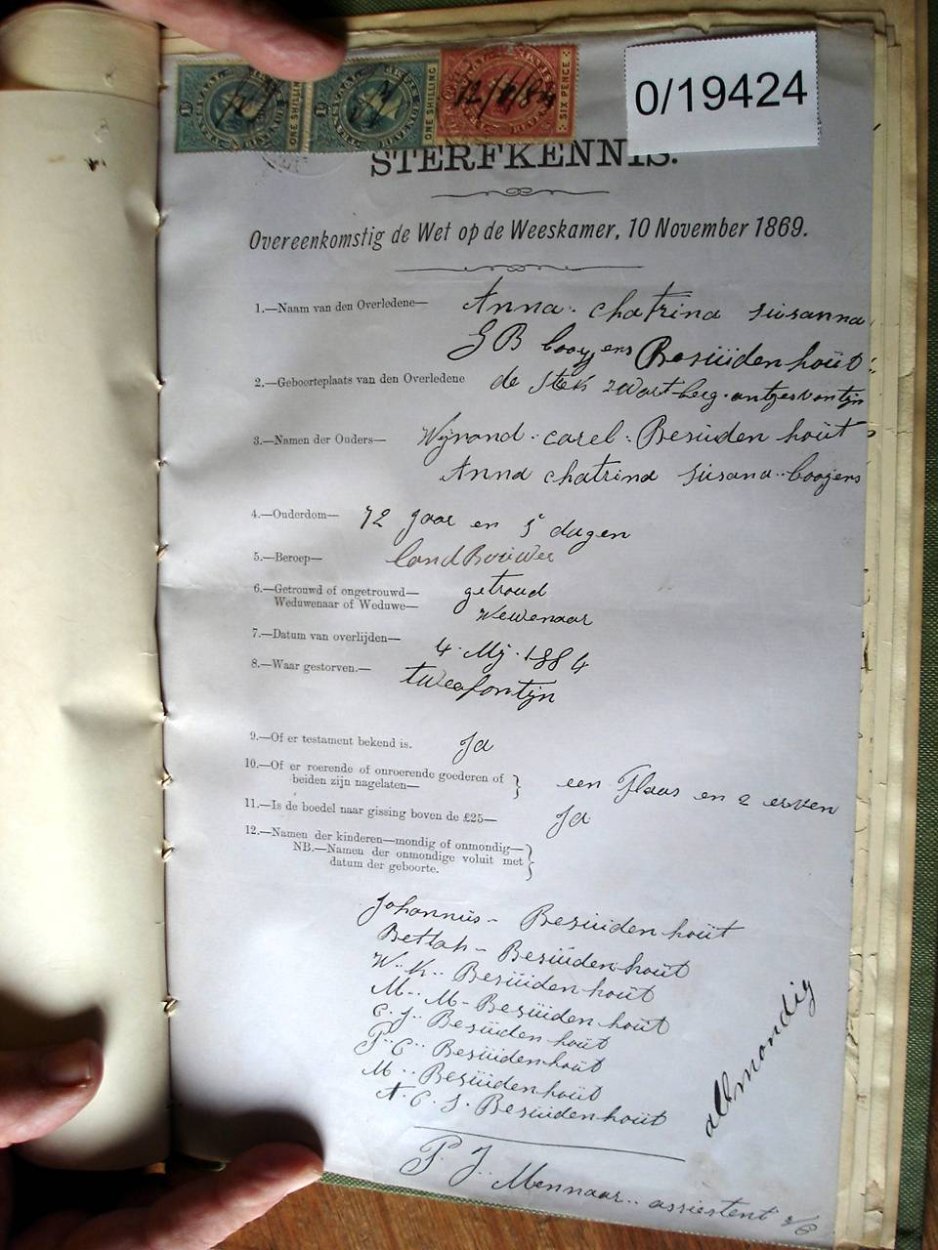 ONE SHILLING
ONE SHILLING
SIX PENCE
12/6/84
0/19424
STERFKENNIS.
Overeenkomstig de Wet op de Weeskamer, 10 November 1869.
1.—Naam van den Overledene— Anna chatrina susanna
booyers Besuidenhout
2.—Geboorteplaats van den Overledene de Zwartberg
3.—Namen der Ouders— Wijnand carel Besuidenhout
Anna chatrina susana booyers
4.—Ouderdom— 72 jaar en 5 dagen
5.—Beroep— landBouwer
6.—Getrouwd of ongetrouwd— getroud
Weduwenaar of Weduwe— Wewenaar
7.—Datum van overlijden— 4 Mij 1884
8.—Waar gestorven.— tweefontijn
9.—Of er testament bekend is. Ja
10.—Of er roerende of onroerende goederen of
beiden zijn nagelaten— een Plaas en 2 erven
11.—Is de boedel naar gissing boven de £25— Ja
12.—Namen der kinderen—mondig of onmondig—
NB.—Namen der onmondige voluit met
datum der geboorte.
Johannüs - Besüidenhoüt
Bettah - Besüidenhoüt
W. K. Besüidenhoüt
M. M - Besüidenhoüt
C. J. Besüidenhoüt
P. C. Besüidenhoüt
M. Besüidenhoüt
A. C. S. Besüidenhoüt
allmondig
P. J. Mennaar assiestent